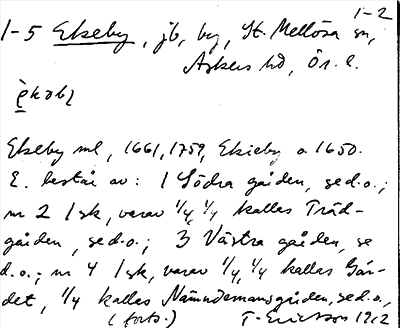 1-2
1-5 Ekeby, jb, by, St. Mellösa sn,
Askers hd, Ör. l.
Ekeby ml, 1661, 1759, Ekieby o 1650.
E. består av: 1 Södra gården, se d.o.;
nr 2 1 sk, varav 1/4, 1/4 kallas Träd-
gården, se d.o.; 3 Västra gården, se
d.o.; nr 4 1 sk, varav 1/4, 1/4 kallas Går-
det, 1/4 kallas Nämndemansgården, se d.o.,
(forts.) T. Ericsson 1912